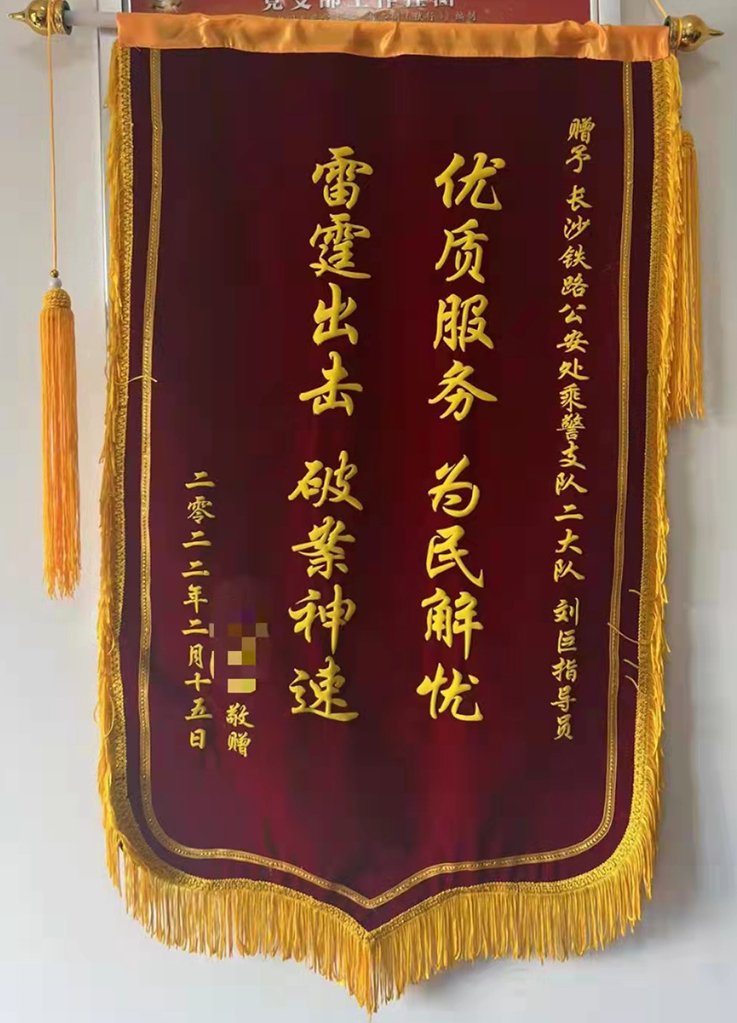 党支部工作挂图
赠予 长沙铁路公安处乘警支队二大队 刘巨指导员
优质服务 为民解忧
雷霆出击 破案神速
敬赠
二零二二年二月十五日